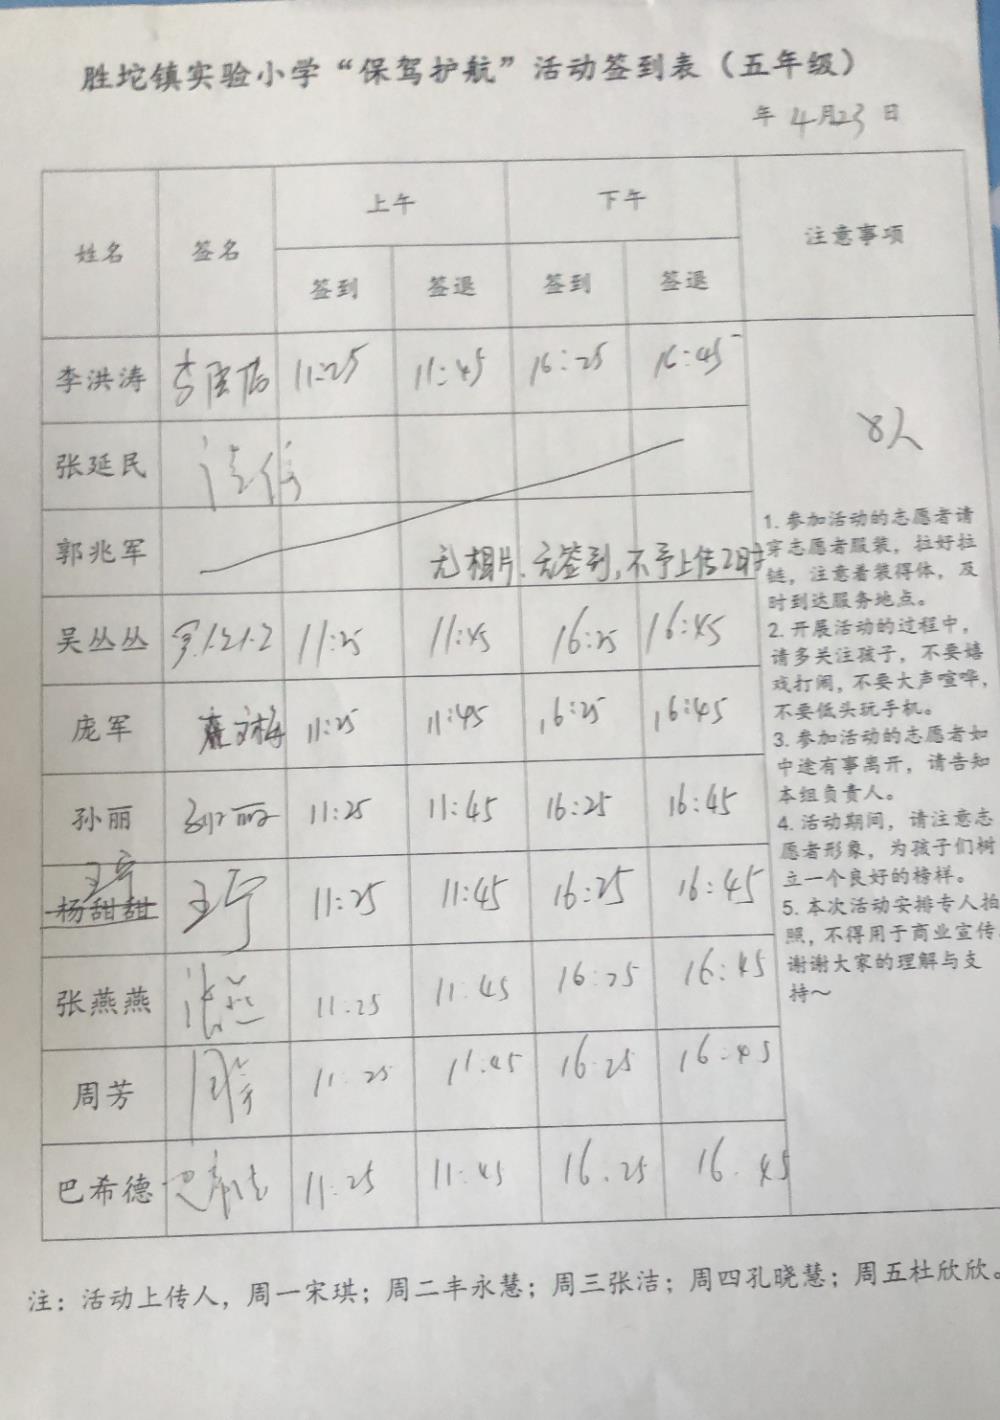 胜坨镇实验小学“保驾护航”活动签到表（五年级）
年 4月23日
姓名 签名 上午 下午 注意事项
签到 签退 签到 签退
李洪涛 11:25 11:45 16:25 16:45
8人
张延民 请假
郭兆军 无相片、无签到,不予上传
吴丛丛 11:25 11:45 16:25 16:45
庞军 11:25 11:45 16:25 16:45
孙丽 11:25 11:45 16:25 16:45
王宁
杨甜甜 王宁 11:25 11:45 16:25 16:45
张燕燕 张燕 11:25 11:45 16:25 16:45
周芳 周芳 11:25 11:45 16:25 16:45
巴希德 巴希德 11:25 11:45 16.25 16.45
1. 参加活动的志愿者请
穿志愿者服装，拉好拉
链，注意着装得体，及
时到达服务地点。
2. 开展活动的过程中，
请多关注孩子，不要嬉
戏打闹，不要大声喧哗，
不要低头玩手机。
3. 参加活动的志愿者如
中途有事离开，请告知
本组负责人。
4. 活动期间，请注意志
愿者形象，为孩子们树
立一个良好的榜样。
5. 本次活动安排专人拍
照，不得用于商业宣传，
谢谢大家的理解与支
持～
注：活动上传人，周一宋琪；周二丰永慧；周三张洁；周四孔晓慧；周五杜欣欣。